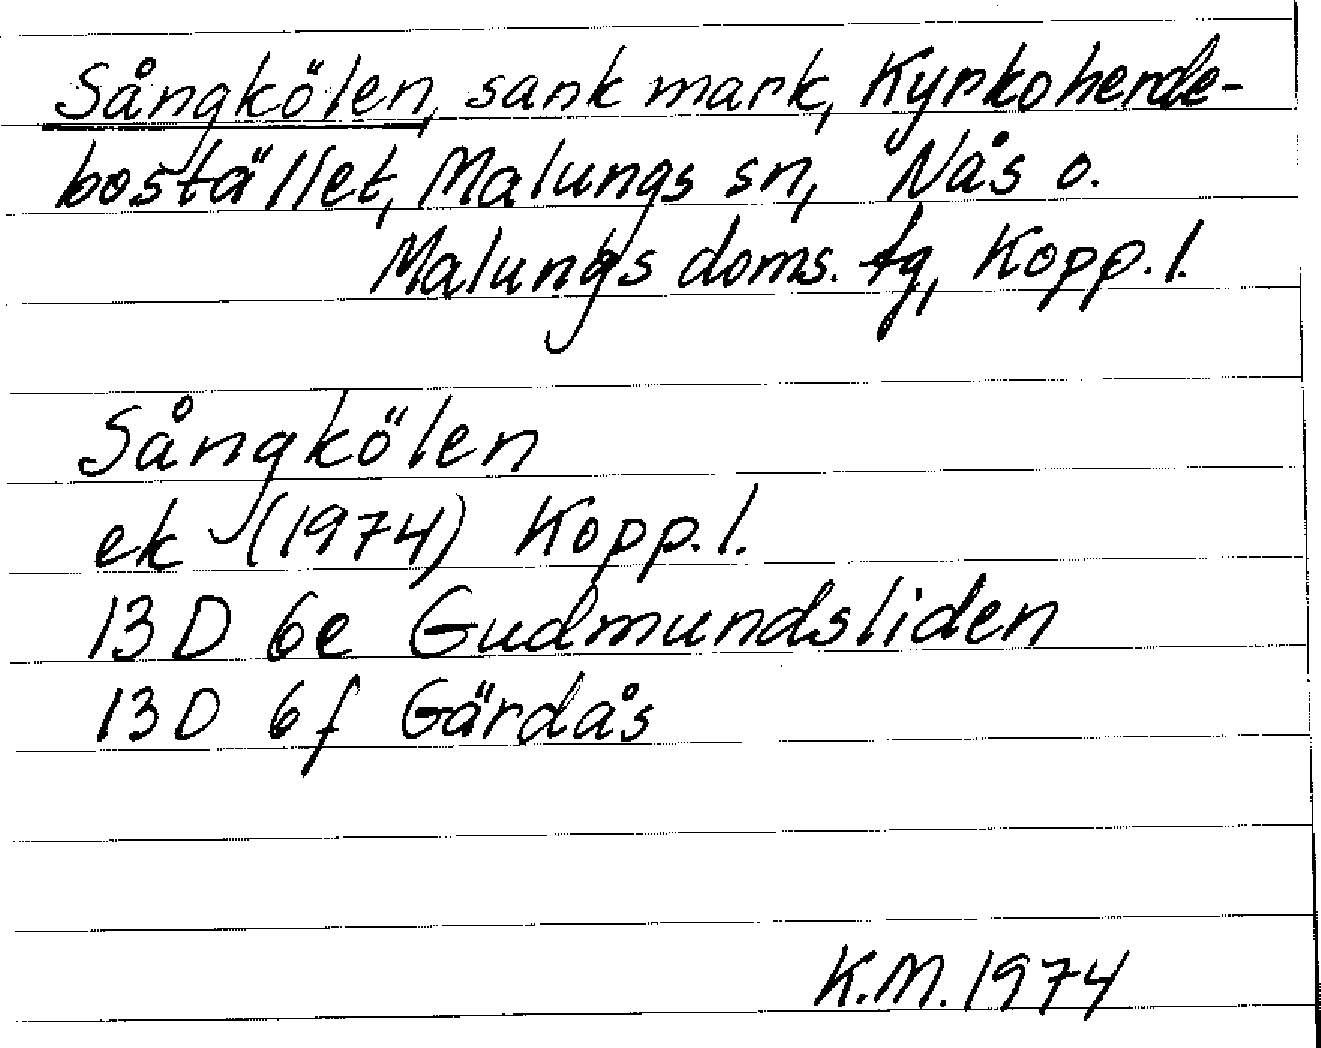 Sångkölen, sank mark, Kyrkoherde-
bostället, Malungs sn, Nås o.
Malungs doms. tg, Kopp. l.
Sångkölen
ek (1974) Kopp. l.
13 D 6e Gudmundsliden
13 D 6f Gärdås
K.M. 1974